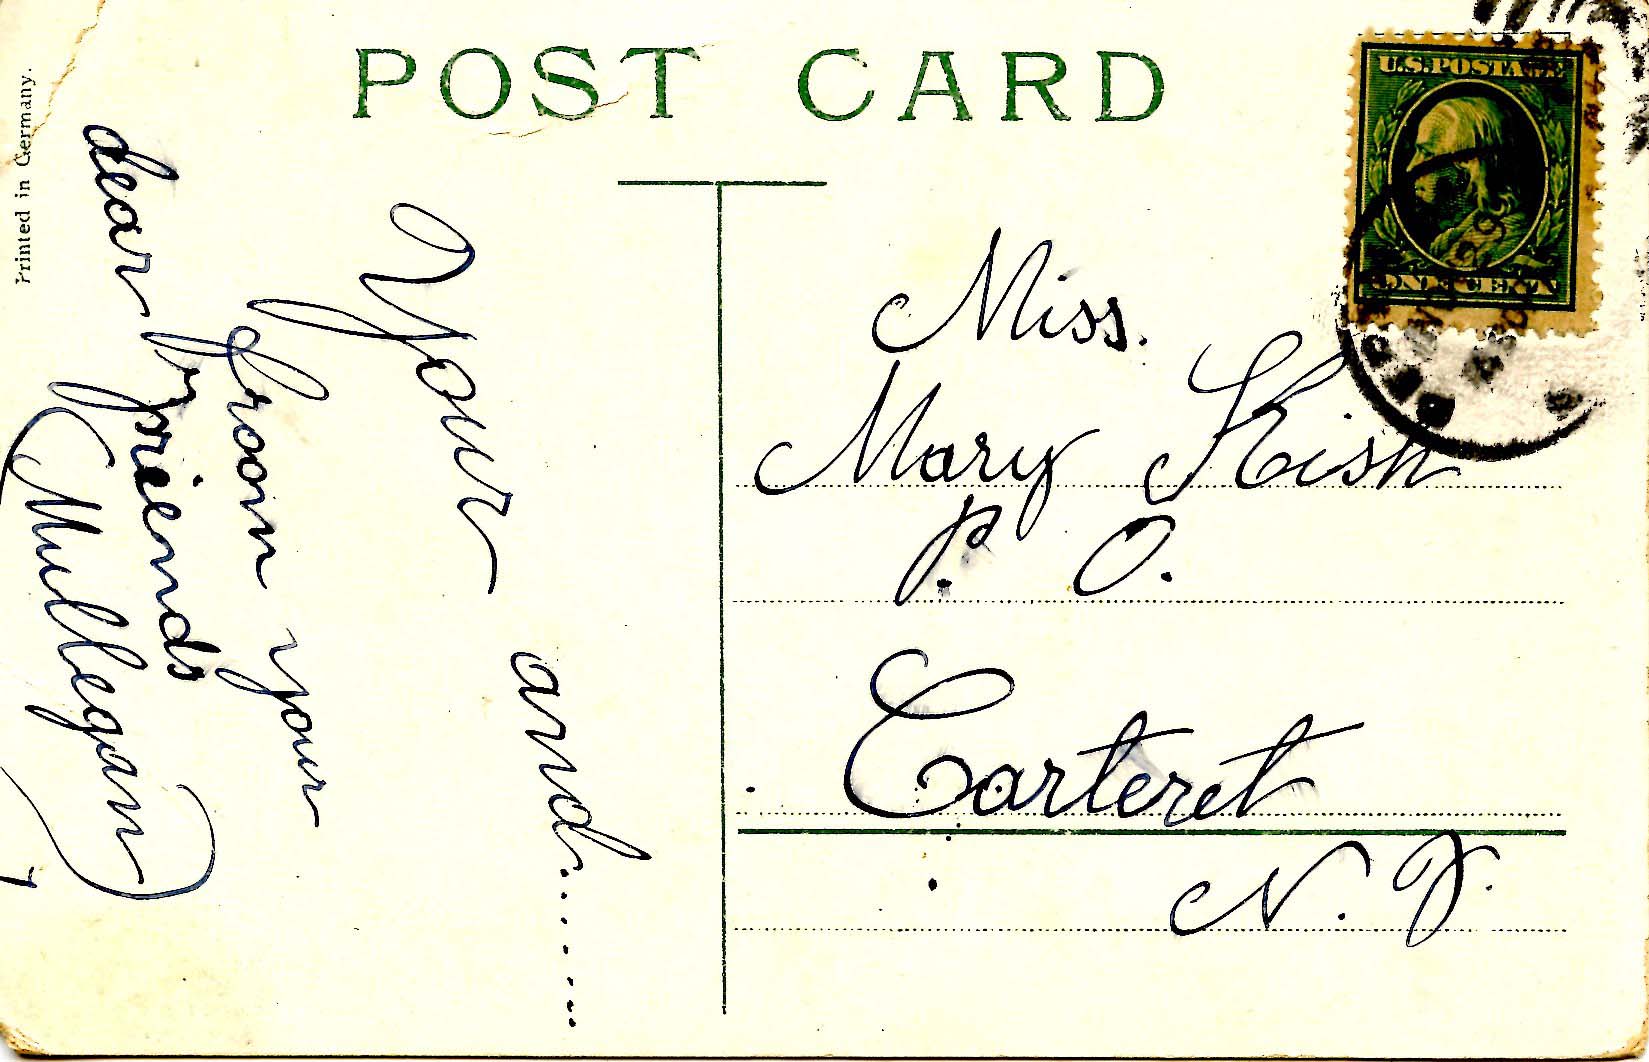 POST CARD
Printed in Germany.
U.S. POSTAGE
ONE CENT
Your and.......
from your
dear friends
(Mullegan)
Miss.
Mary Kish
P. O.
Carteret
N. J.